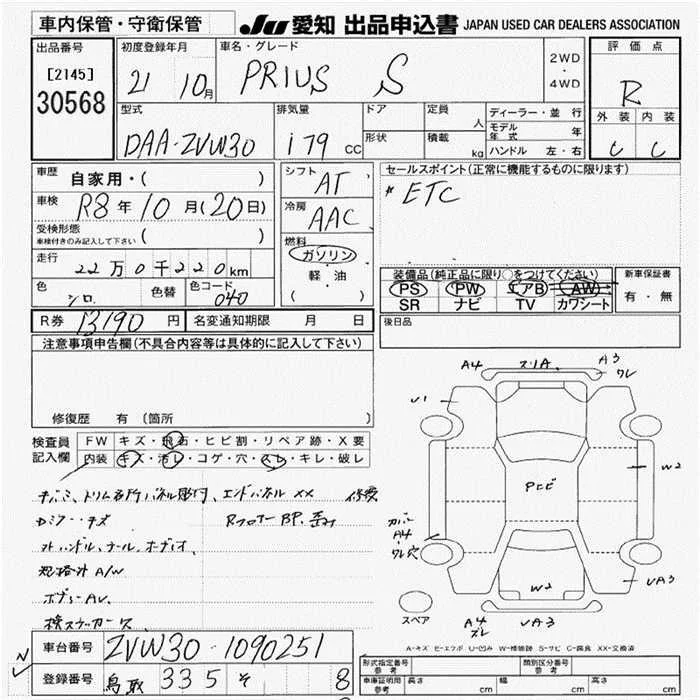 車内保管・守衛保管
JU 愛知 出品申込書 JAPAN USED CAR DEALERS ASSOCIATION
出品番号
[2145]
30568
初度登録年月
21 10月
車名・グレード
PRIUS S
2WD
・
4WD
評価点
R
外装 内装
C C
型式
DAA-ZVW30
排気量
179 CC
ドア
形状
定員 人
積載 kg
ディーラー・並行
モデル年式 年
ハンドル 左・右
車歴 自家用・( )
車検 R8年10月(20日)
受検形態
車検付きのみ記入して下さい ( )
走行 22万0千220km
色 シロ 色替 色コード 040
シフト AT
冷房 AAC
燃料
ガソリン
・
軽・油
( )
セールスポイント(正常に機能するものに限ります)
* ETC
装備品(純正品に限り○をつけてください)
PS PW エアB AW
SR ナビ TV カワシート
新車保証書
有・無
R券 13190円 名変通知期限 月 日
後日品
注意事項申告欄(不具合内容等は具体的に記入して下さい)
修復歴 有 (箇所 )
検査員
記入欄
FW キズ・飛石・ヒビ割・リペア跡・X要
内装 キズ・汚レ・コゲ・穴・スレ・キレ・破レ
エンドパネル XX 修要
Rフロアー BP.歪ミ
規格外 A/W
検ステッカー
A4 スリA A3
ワレ
U1
W2
Pニビ
カバー
A4
ワレ穴
W2
UA3
スペア
A4
ズレ
UA3
A-キズ E-エクボ U-凹み W-補修跡 S-サビ C-腐食 XX-交換済
車台番号 ZVW30-1090251
登録番号 鳥取 335 そ 8
形式指定番号
参考
類別区分番号
参考
車庫証明用
参考
長さ cm
幅 cm
高さ cm